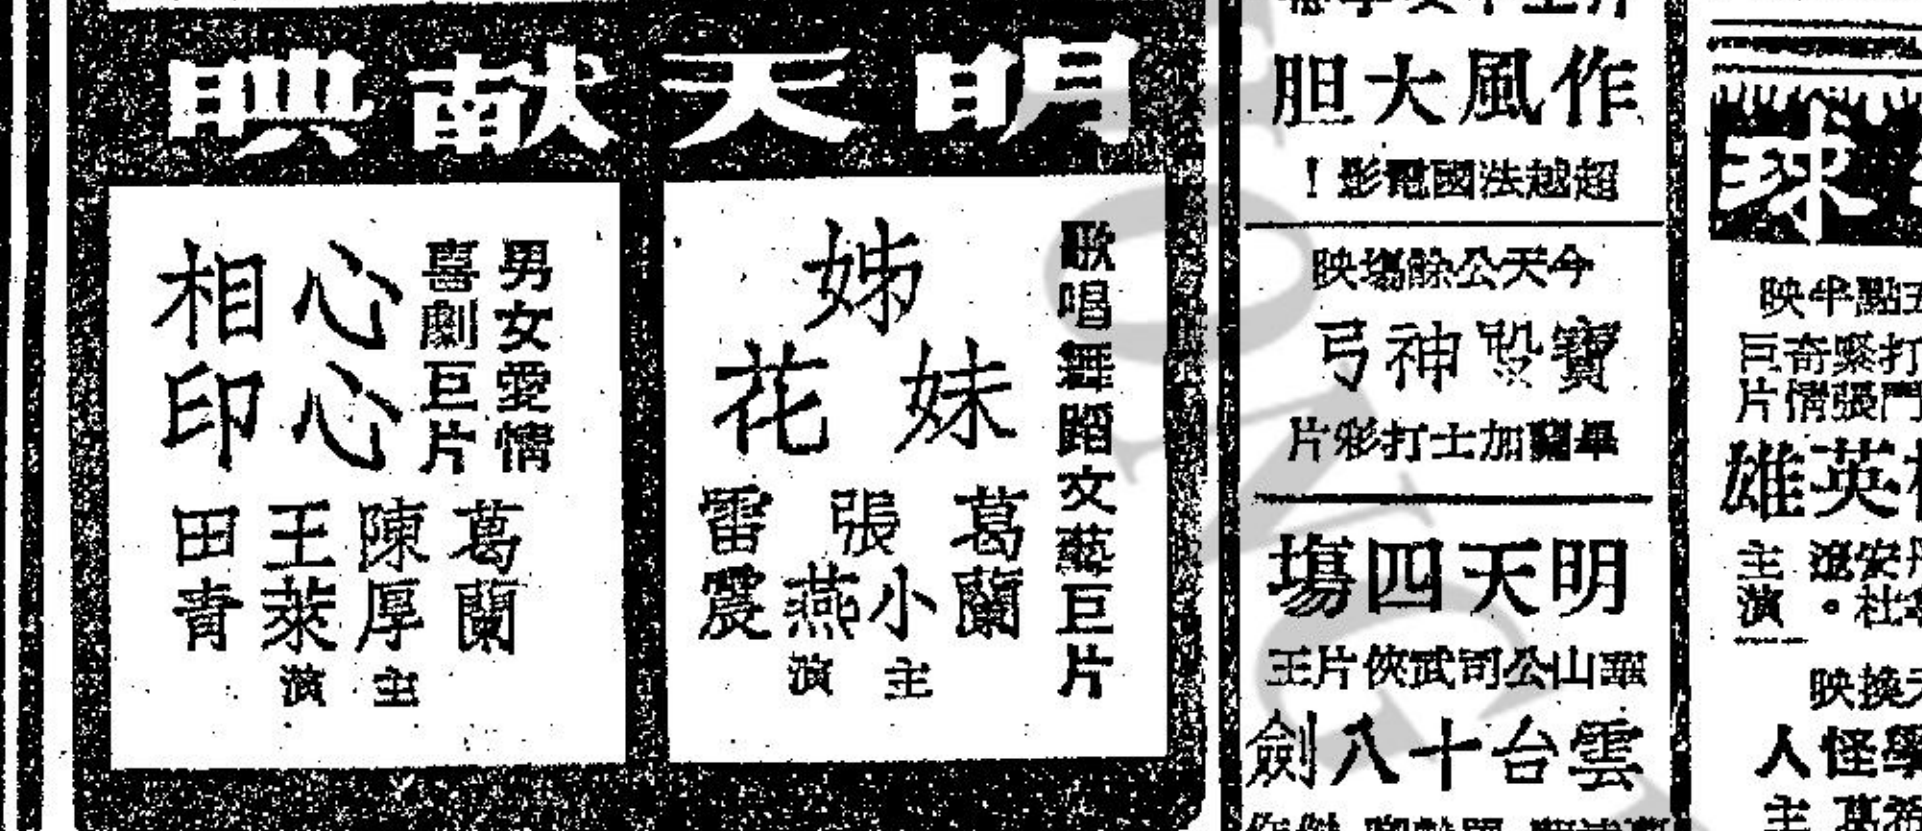 明天献映
歌唱舞蹈文藝巨片
姊
妹花
葛蘭
張小燕
雷震
主演
男女愛情
喜劇巨片
心心
相印
葛蘭
陳厚
王萊
田青
主演
作風大胆
超越法國電影！
今天公餘場映
寶殿神弓
畢蘭加士打彩片
明天四場
山公司武俠片王
雲台十八劍
球
點半映
打
緊張
奇情
巨片
英雄
主演
換映
怪人
主